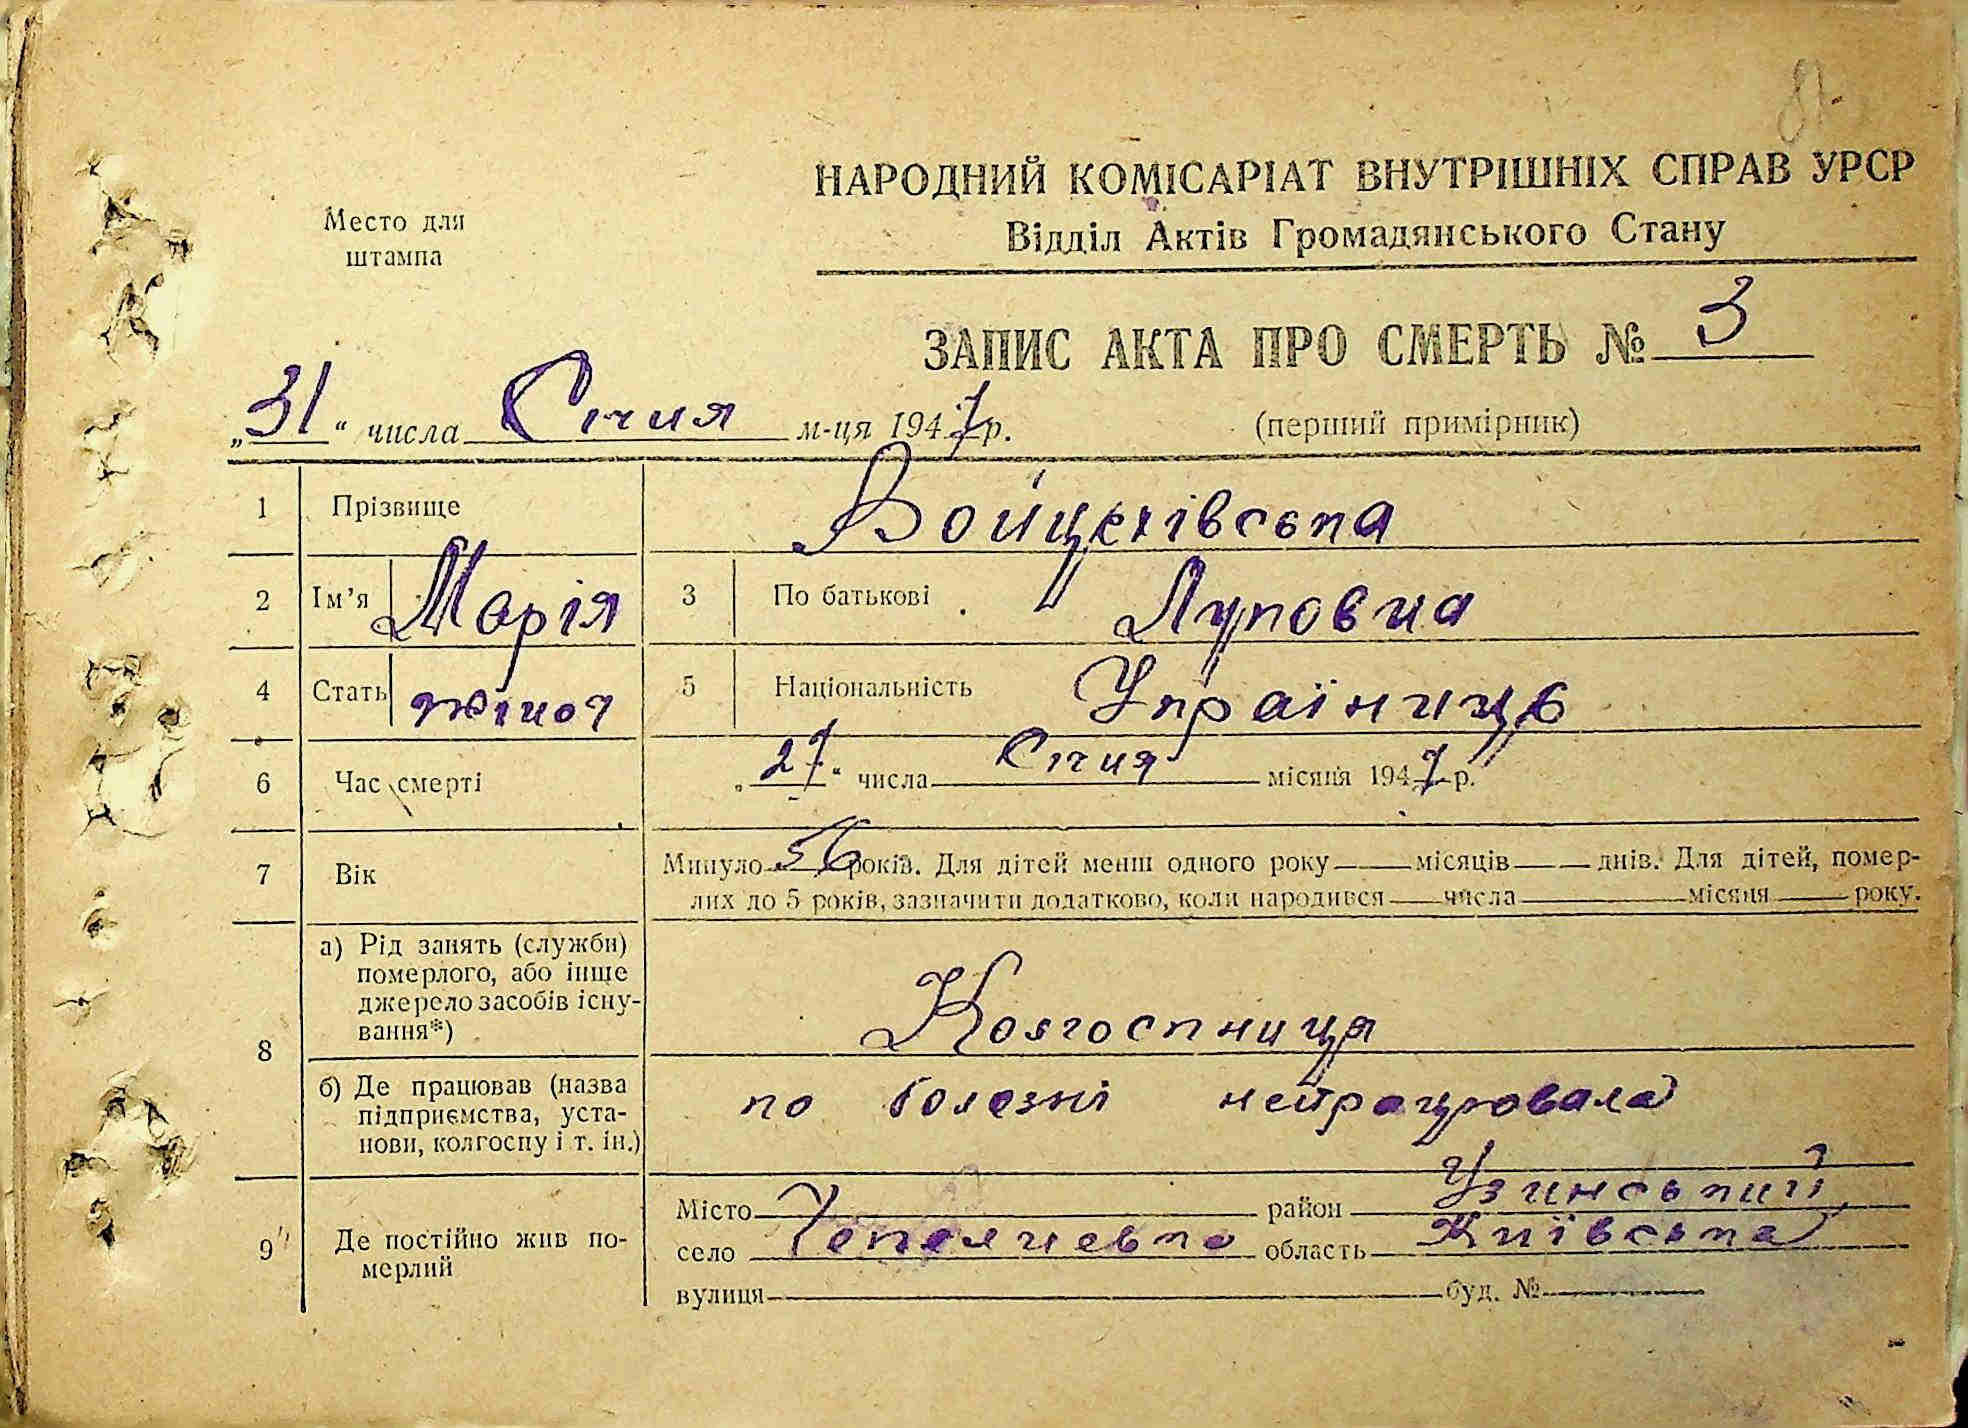 Место для
штампа
НАРОДНИЙ КОМІСАРІАТ ВНУТРІШНІХ СПРАВ УРСР
Відділ Актів Громадянського Стану
ЗАПИС АКТА ПРО СМЕРТЬ № 3
„31“ числа Січня м-ця 1947 р. (перший примірник)
1 Прізвище Войцехівська
2 Ім’я Марія 3 По батькові Луковна
4 Стать жіноч 5 Національність Українищ
6 Час смерті „27“ числа Січня місяця 1947 р.
7 Вік Минуло 56 років. Для дітей менш одного року місяців днів. Для дітей, помер-
лих до 5 років, зазначити додатково, коли народився числа місяця року.
8 а) Рід занять (служби)
померлого, або інше
джерело засобів існу-
вання*)
Колгоспниця
б) Де працював (назва
підприємства, уста-
нови, колгоспу і т. ін.)
по болезні непрацювала
9 Де постійно жив по-
мерлий
Місто район Узинський
село Чепелиевка область Київська
вулиця буд. №